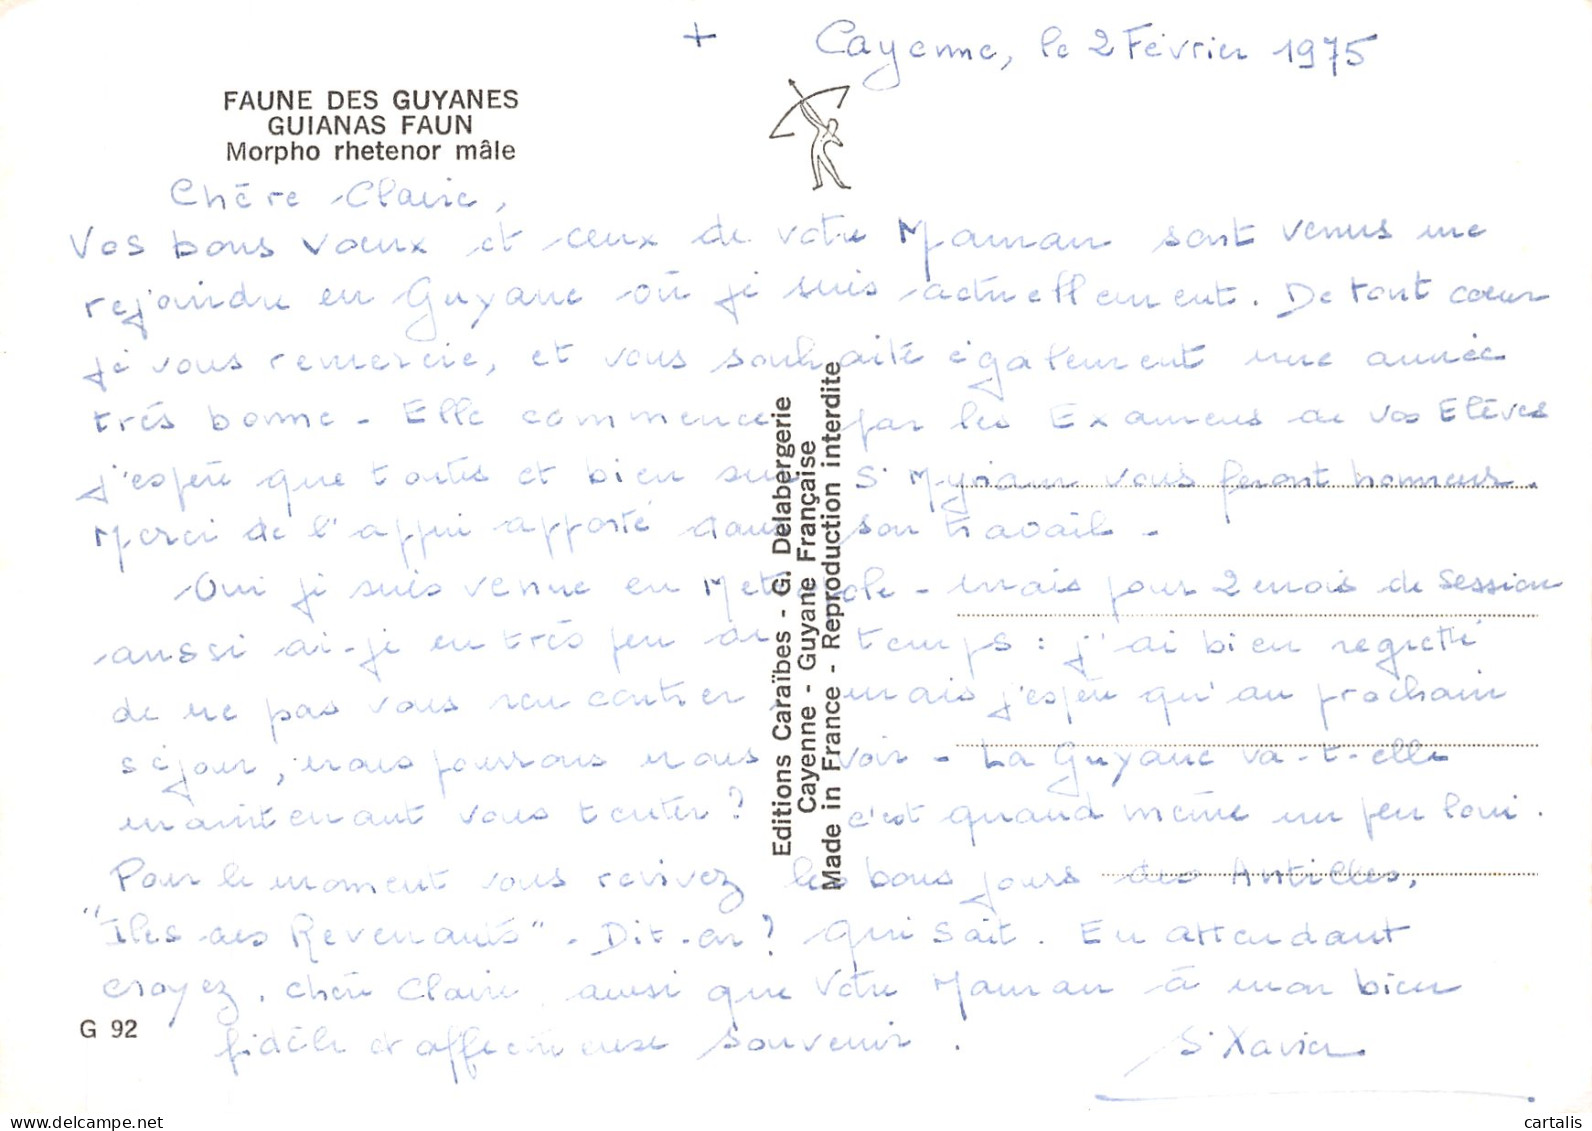 + Cayenne, le 2 Février 1975
FAUNE DES GUYANES
GUIANAS FAUN
Morpho rhetenor mâle
Chère Claire,
Vos bons voeux et ceux de votre Maman sont venus me
rejoindre en Guyane où je suis actuellement. De tout coeur
je vous remercie, et vous souhaite également une année
très bonne - Elle commence par les Examens de vos Elèves
j'espère que toutes et bien sur Sr Myriam vous feront honneur.
Merci de l'appui apporté dans son travail -
Oui je suis venue en Metropole - mais pour 2 mois de Session
aussi ai-je eu très peu de temps : j'ai bien regretté
de ne pas vous rencontrer, mais j'espère qu'au prochain
séjour, nous pourrons nous voir - La Guyane va-t-elle
maintenant vous tenter ? c'est quand même un peu loin.
Pour le moment vous revivez les bons jours des Antilles,
"Iles des Revenants" - Dit-on ? Qui sait. En attendant
croyez, chère Claire, ainsi que votre Maman à mon bien
fidèle et affectueux souvenir.
Sr Xavier
G 92
Editions Caraïbes - G. Delabergerie
Cayenne - Guyane Française
Made in France - Reproduction interdite